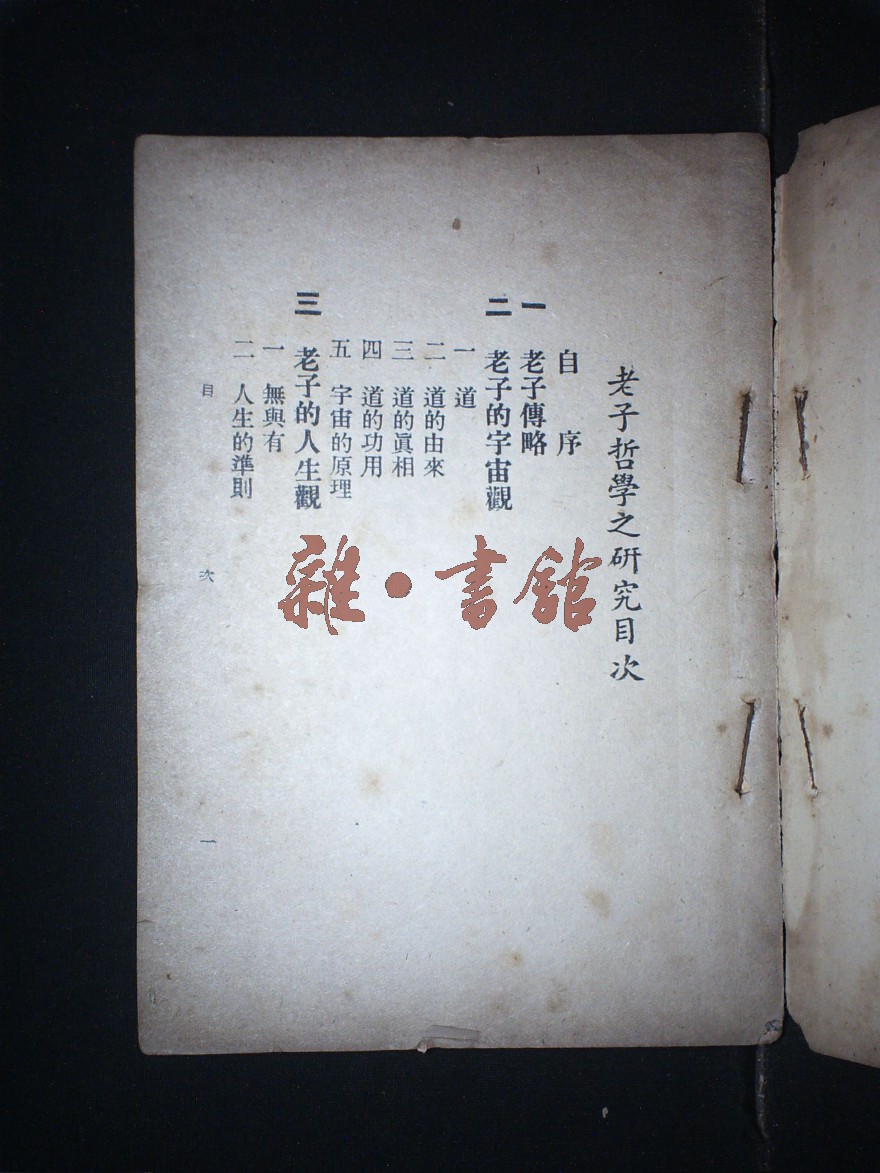 老子哲學之研究目次
自序
一 老子傳略
二 老子的宇宙觀
一 道
二 道的由來
三 道的眞相
四 道的功用
五 宇宙的原理
三 老子的人生觀
一 無與有
二 人生的準則
目次 一
雜·書館